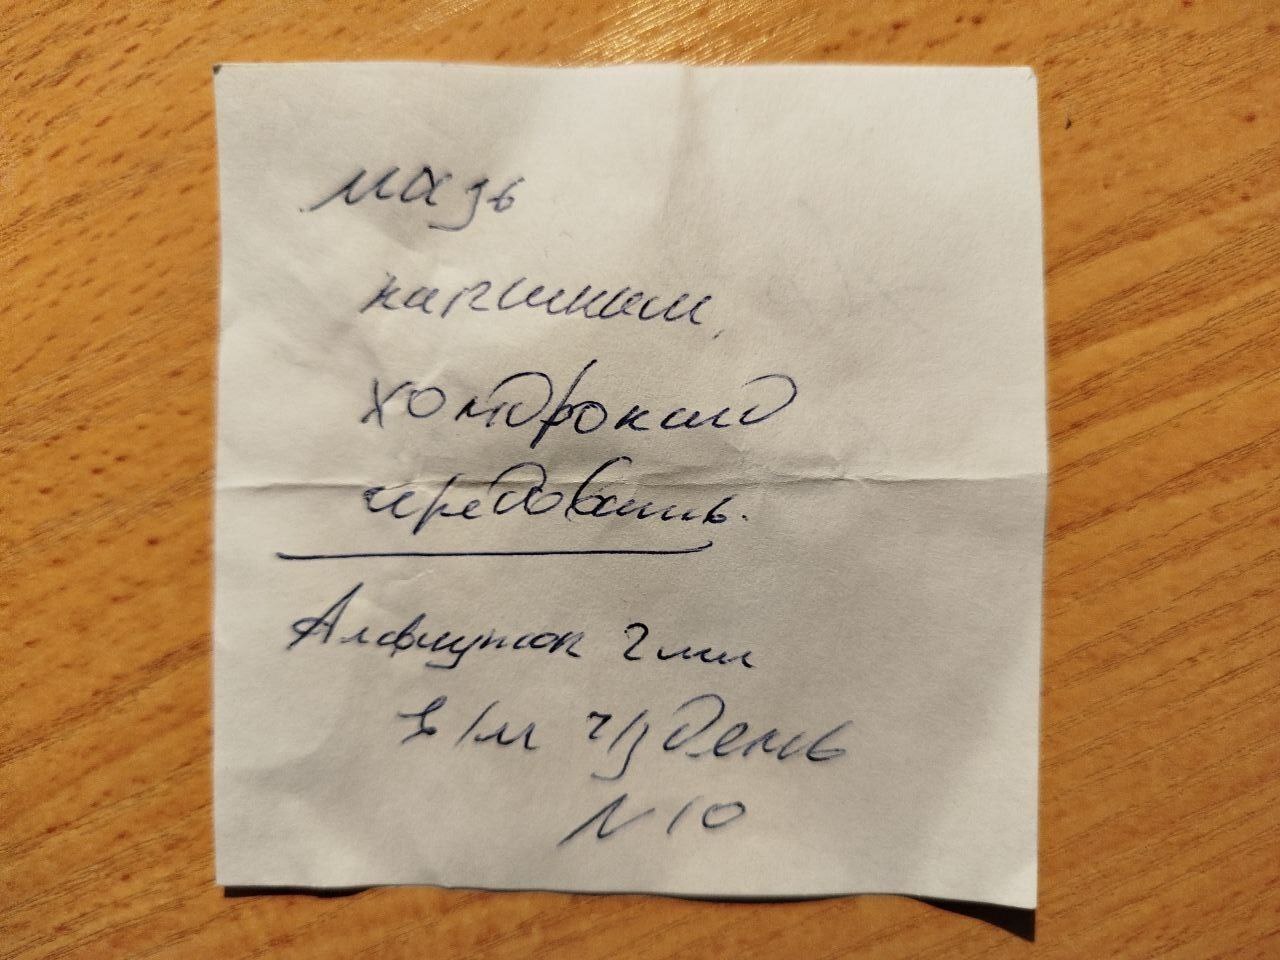 мазь
капсикам,
хондроксид
чередовать.
Алфлутоп 2 мл
в/м ч/з день
N 10